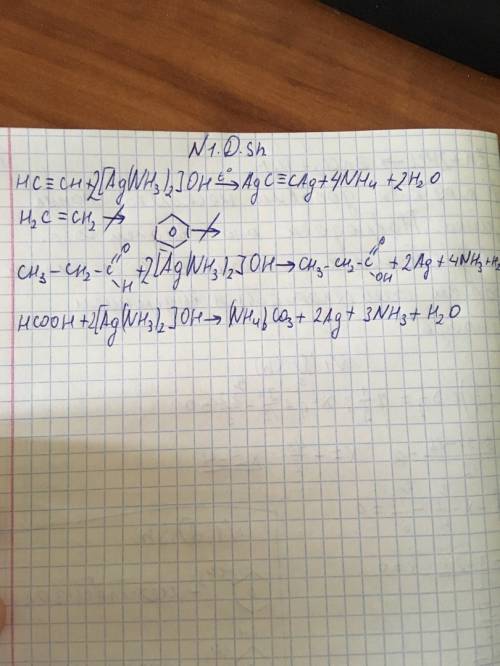 N1. D. Sh
HC≡CH+2[Ag(NH3)2]OH t°→ AgC≡CAg+4NH4 +2H2O
H2C=CH2 ↛ ↛
CH3-CH2-C=O H +2[Ag(NH3)2]OH→CH3-CH2-C=O OH +2Ag+4NH3+H2
HCOOH+2[Ag(NH3)2]OH→(NH4)2CO3+2Ag+3NH3+H2O